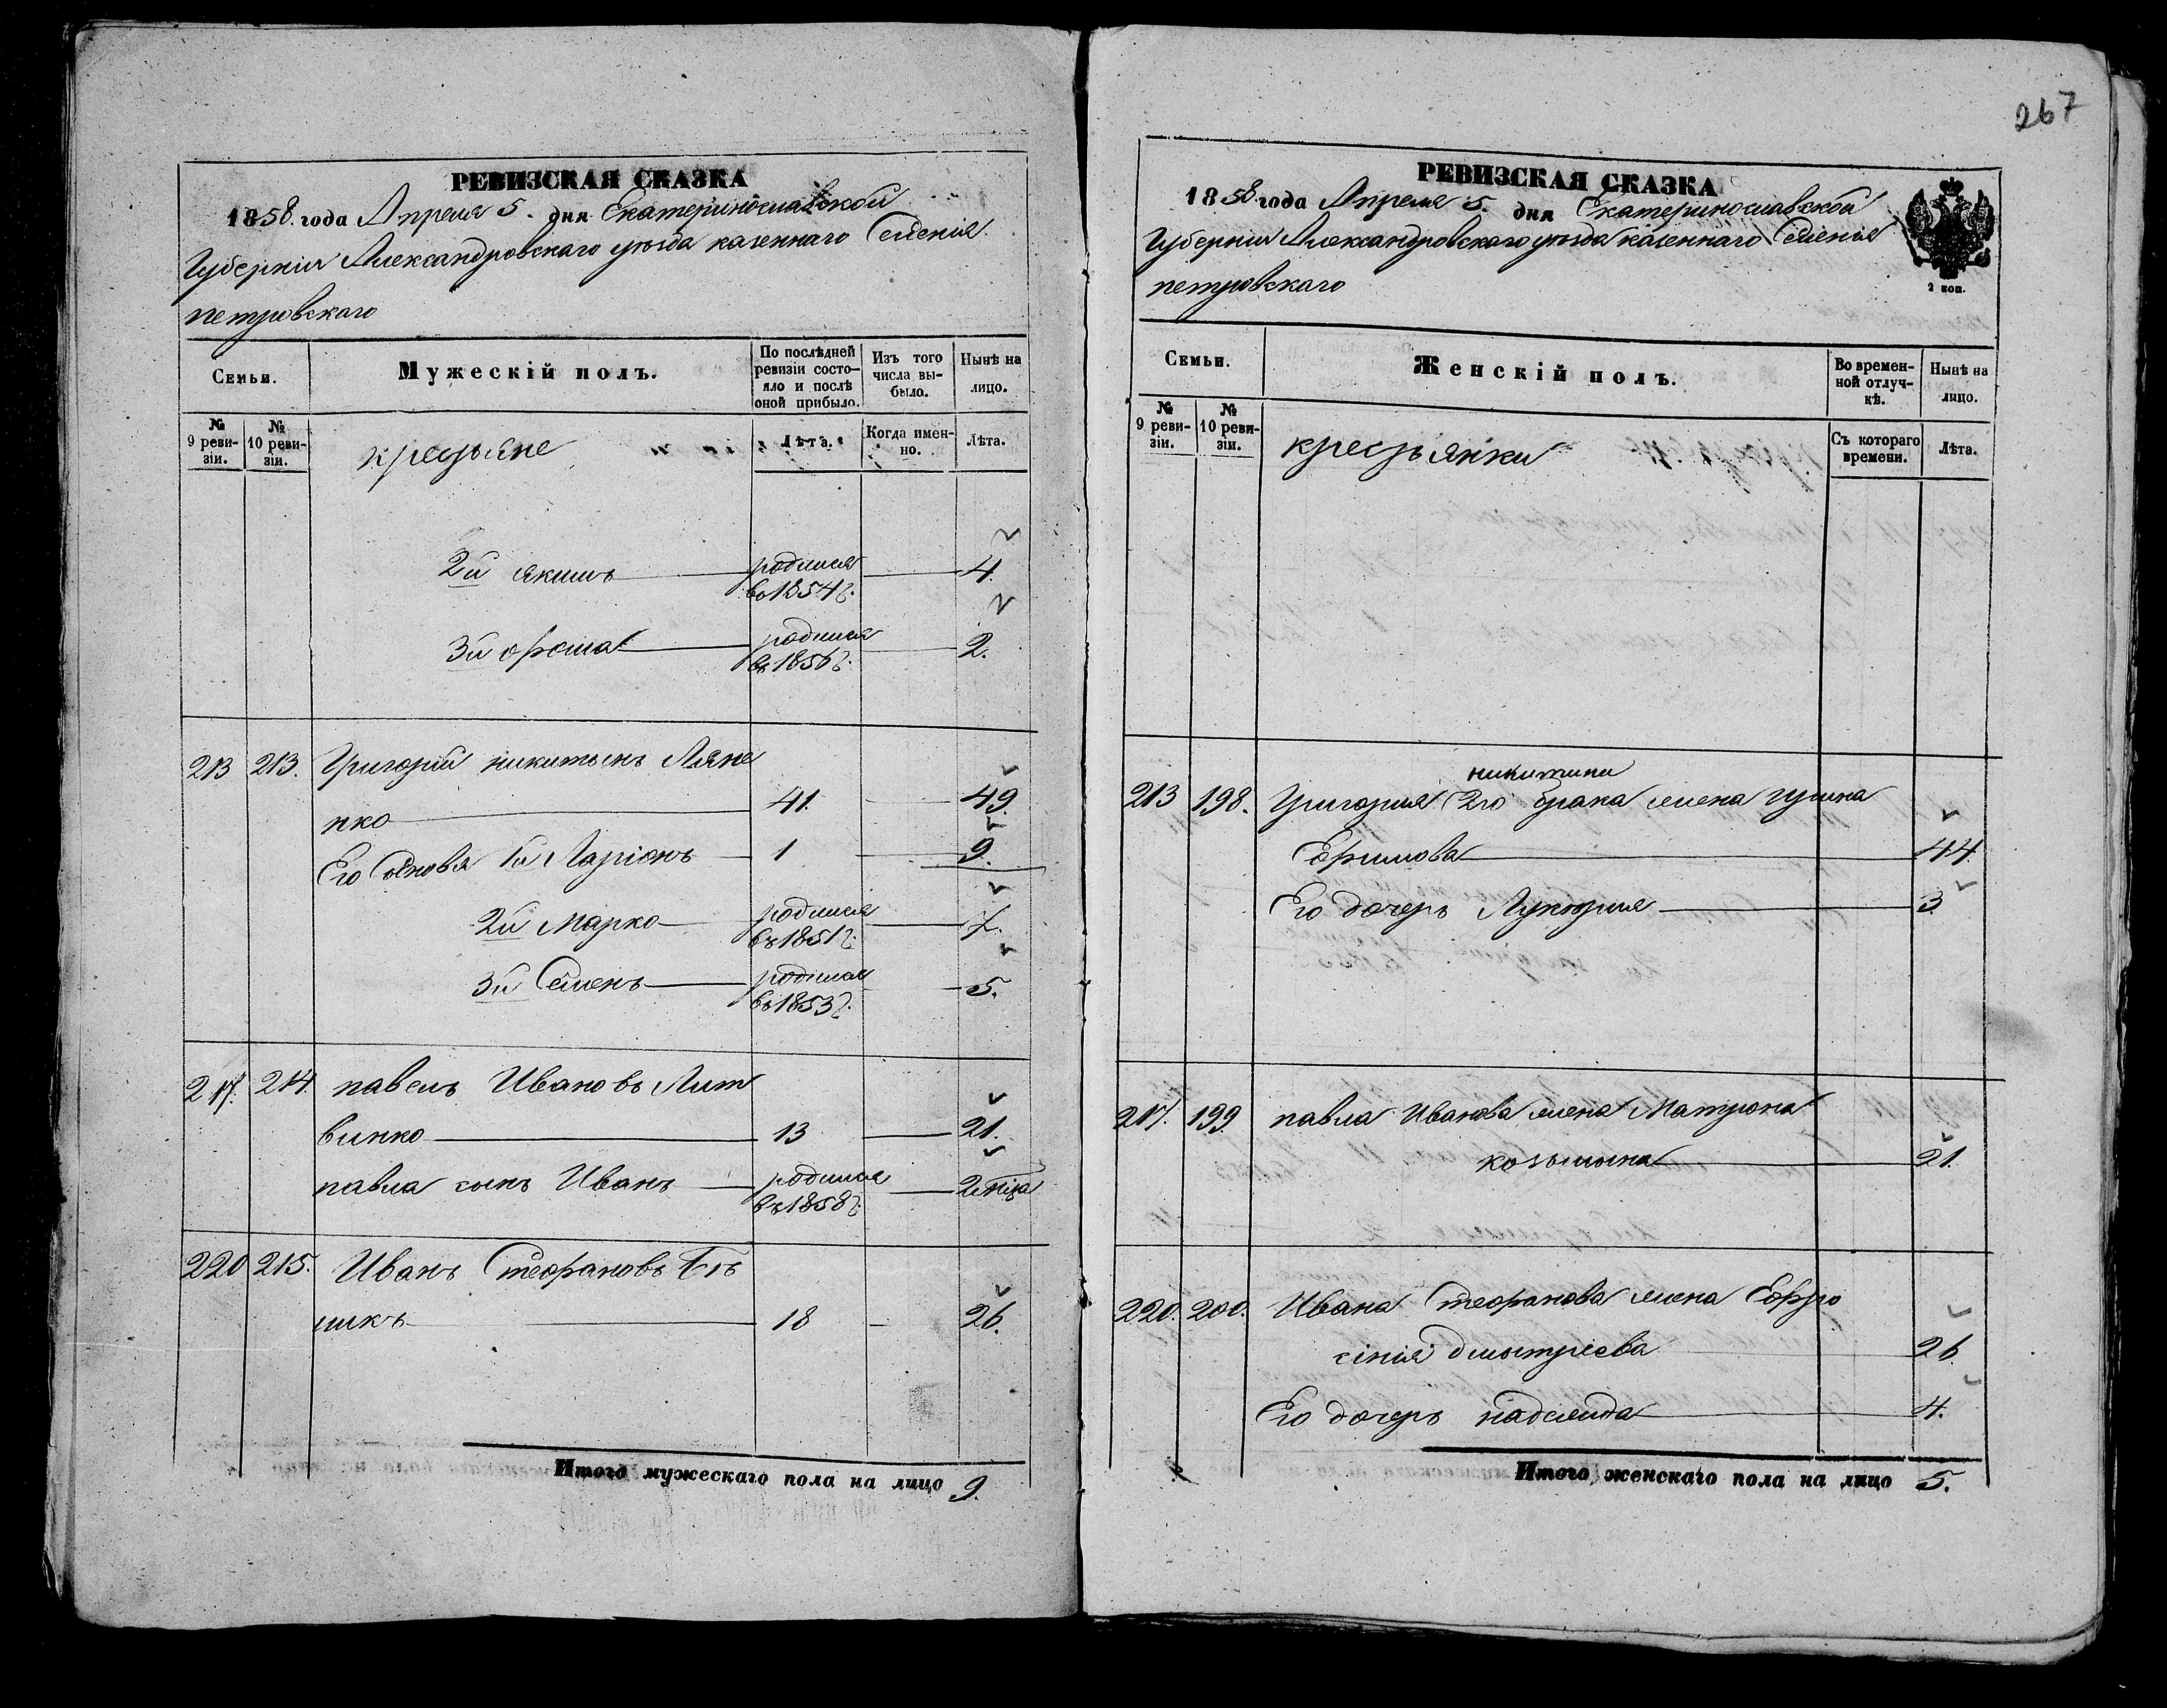 267
РЕВИЗСКАЯ СКАЗКА
1858 года Апреля 5. дня Екатеринославской
Губерніи Александровскаго уѣзда казеннаго Селенія
петровскаго
Семьи.
Мужескій полъ.
По послѣдней ревизіи состояло и послѣ оной прибыло.
Изъ того числа выбыло.
Нынѣ на лицо.
№ 9 ревизіи.
№ 10 ревизіи.
крестьяне
Лѣта.
Когда именно.
Лѣта.
2й якимъ родился въ 1854 г. 4.
3й родился въ 1856 г. 2.
213 213. Григорий никитынъ Ляне
нко 41. 49.
Его Сыновя 1й Ларіонъ 1 9.
2й Марко родился въ 1851 г. 7.
3й Семенъ родился въ 1853 г. 5.
217. 214. павелъ Ивановъ Лит
винко 13 21.
павла сынъ Иванъ родился въ 1858 г.
220 215. Иванъ Стефановъ Бѣ
ликъ 18 26.
Итого мужескаго пола на лицо 9.
РЕВИЗСКАЯ СКАЗКА
1858 года Апреля 5. дня Екатеринославской
Губерніи Александровскаго уѣзда казеннаго Селенія
петровскаго
2 коп.
Семьи.
Женскій полъ.
Во временной отлучкѣ.
Нынѣ на лицо.
№ 9 ревизіи.
№ 10 ревизіи.
крестьянки
Съ котораго времени.
Лѣта.
никитина
213 198. Григория 2го брака жена
Ефимова 44
Его дочерь Лукерия 3.
217. 199. павла Иванова жена Матрона
козьмына 21.
220. 200. Ивана Стефанова жена Ефро
сінія дмытріева 26.
Его дочерь надежда 4.
Итого женскаго пола на лицо 5.